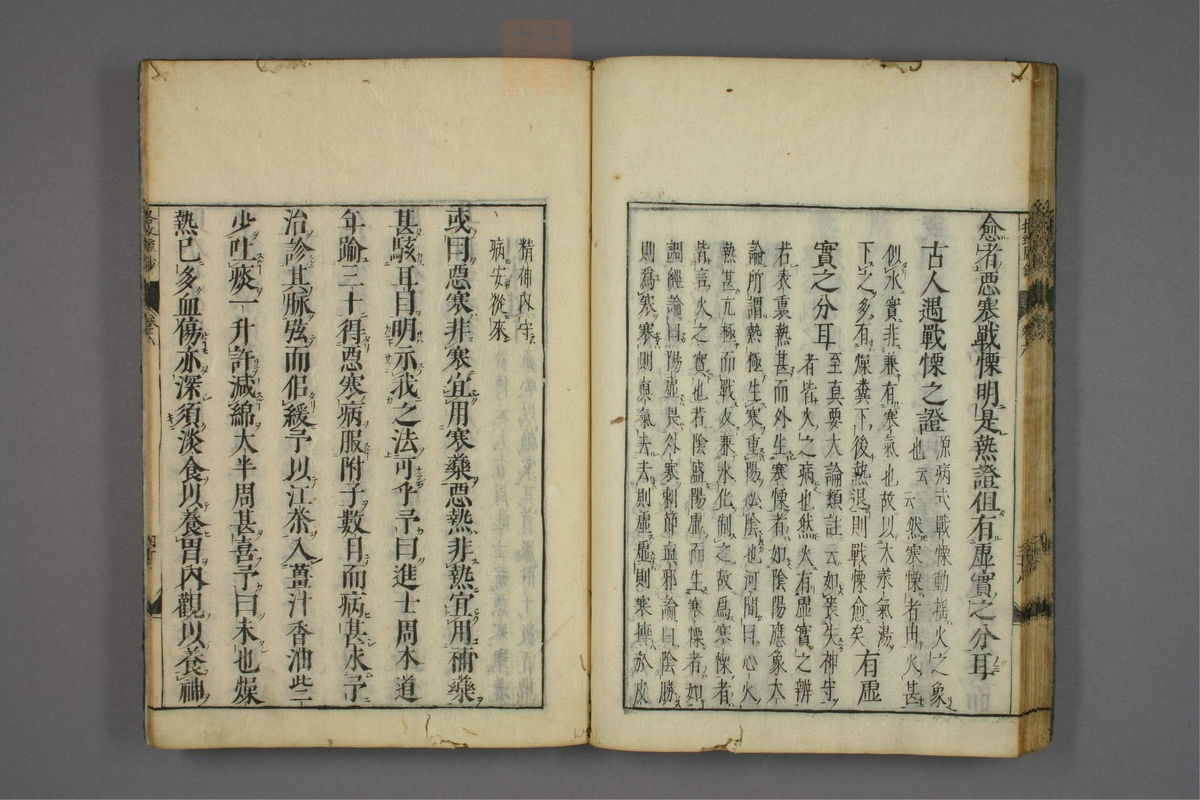 愈者惡寒戰慄明是熱證但有虛實之分耳
古人遇戰慄之證原病式戰慄動搖火之象
也云云然寒慄者由火甚
似水實非兼有寒氣也故以大承氣湯
下之多有燥糞下後熱退則戰慄愈矣有虛
實之分耳至真要大論類註云如喪失神守
者皆火之病也然火有虛實之辨
若表裏熱甚而外生寒慄者如陰陽應象大
論所謂熱極生寒重陽必陰也河間曰心火
熱甚亢極而戰反兼水化制之故爲寒慄者
皆言火之實也若陰盛陽虛而生寒慄者如
調經論曰陽虛畏外寒刺節真邪論曰陰勝
則爲寒寒則真氣去去則虛虛則寒搏於皮
精神內守
病安從來
或曰惡寒非寒宜用寒藥惡熱非熱宜用補藥
甚駭耳目明示我之法可乎予曰進士周本道
年踰三十得惡寒病服附子數日而病甚求予
治診其脈弦而似緩予以江茶入薑汁香油些二
少吐痰一升許減綿大半周甚喜予曰未也燥
熱已多血傷亦深須淡食以養胃內觀以養神